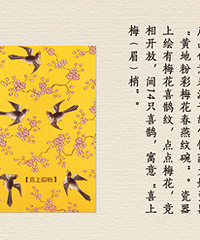 "黄地粉彩梅花春燕纹碗"。瓷器
上绘有梅花喜鹊纹，点点梅花，竞
相开放，间14只喜鹊，寓意"喜上
梅（眉）梢"。
【喜上眉梢】